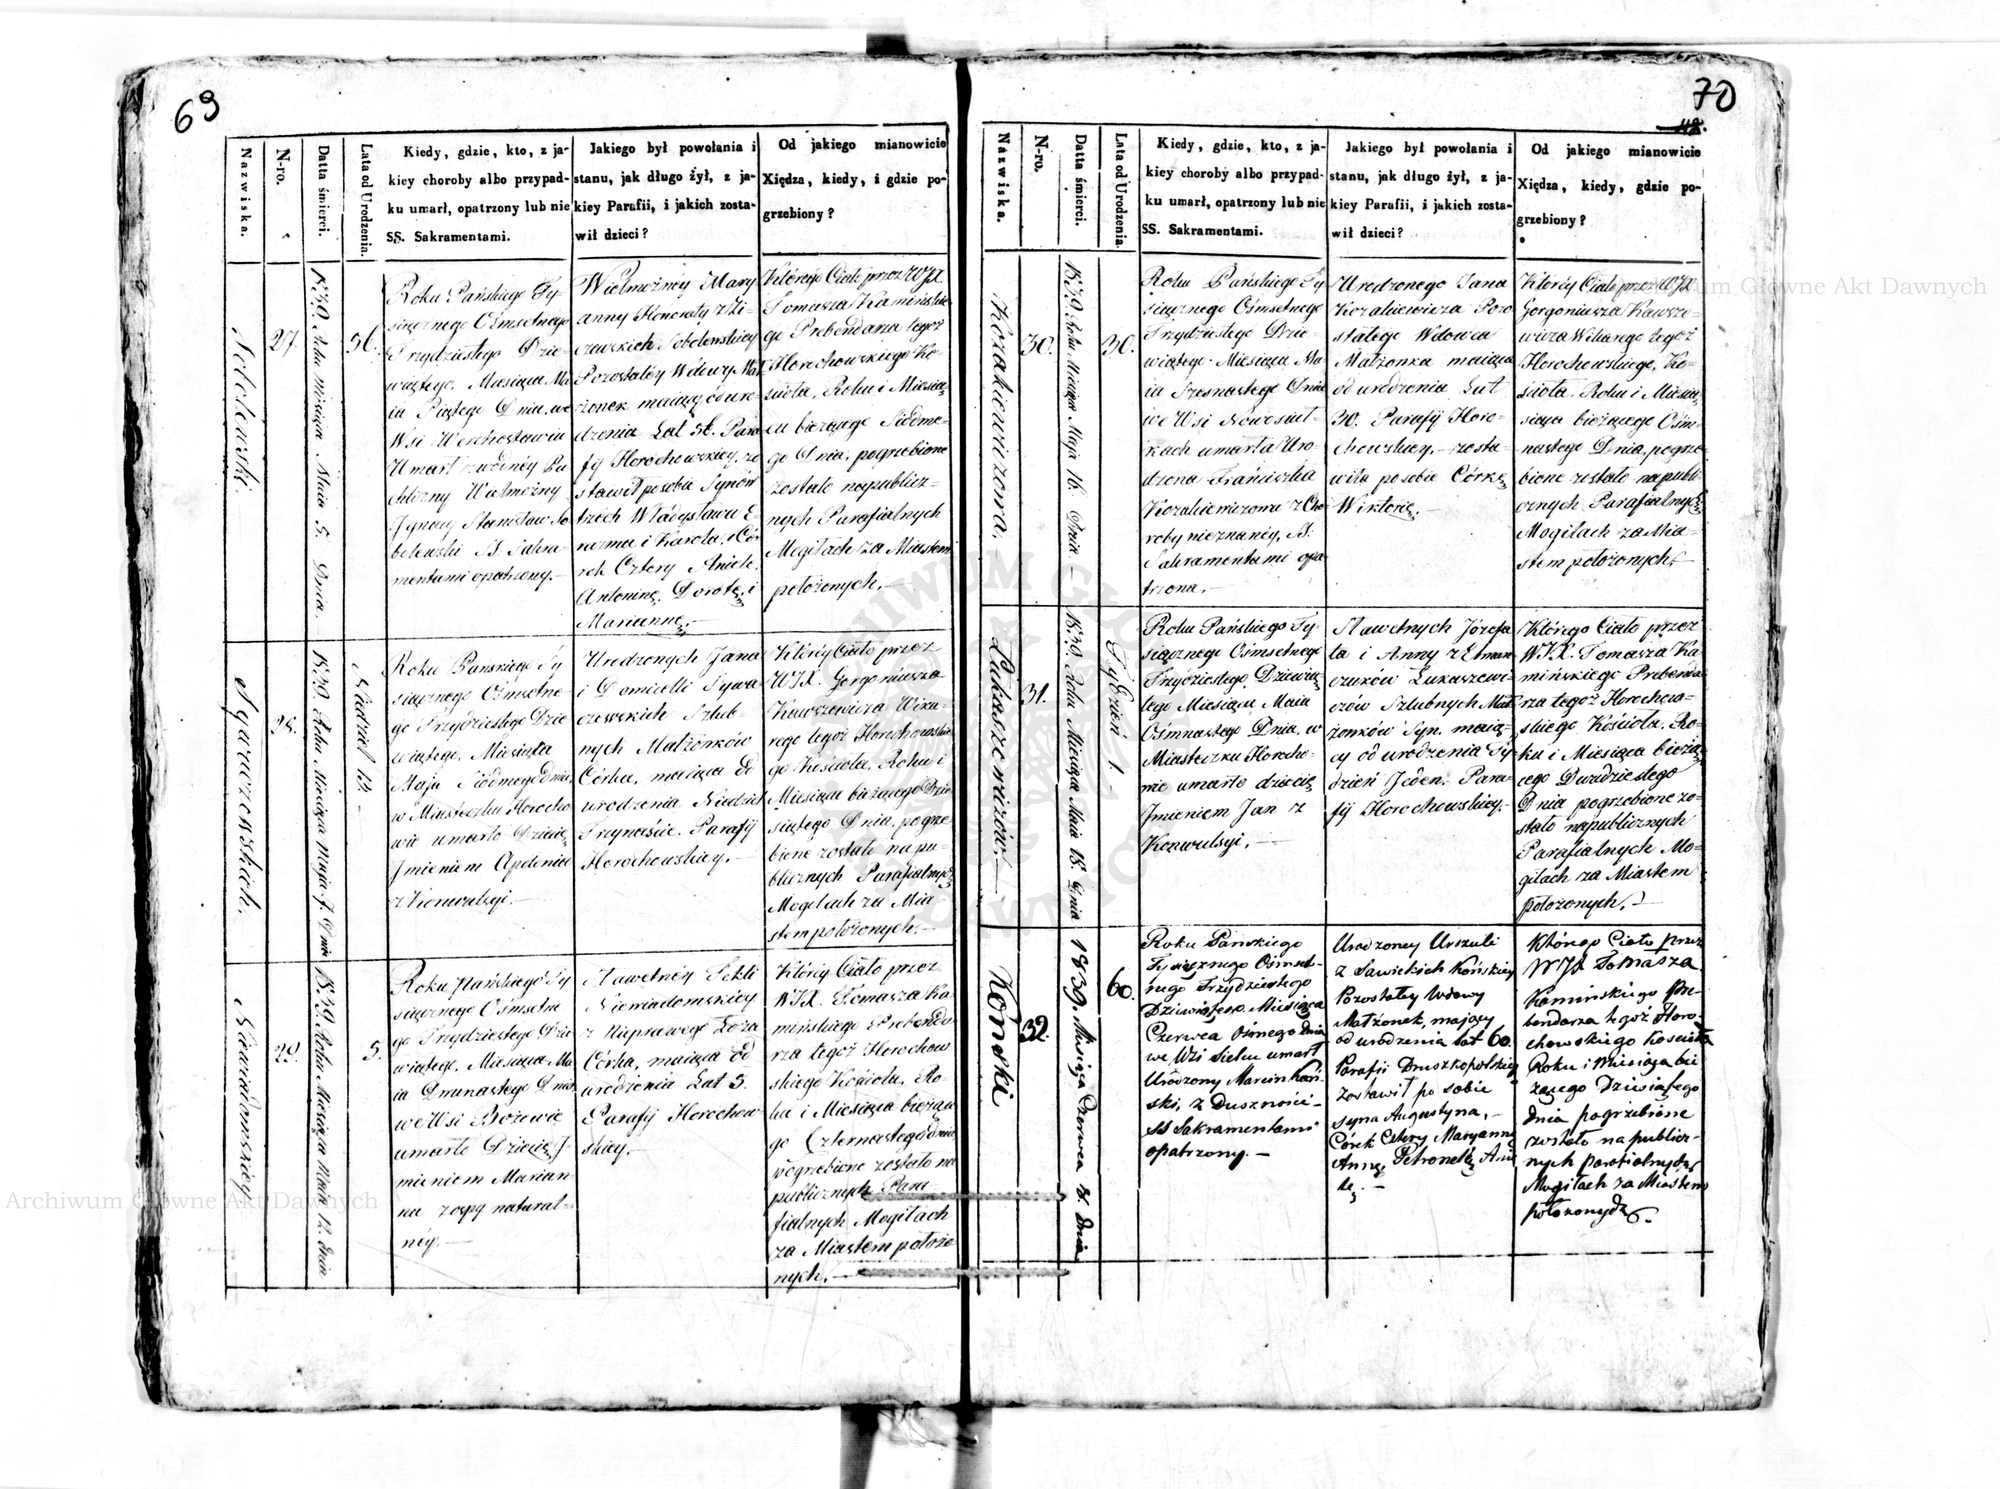 69
Nazwiska.
N-ro.
Datta śmierci.
Lata od Urodzenia.
Kiedy, gdzie, kto, z ja-
kiey choroby albo przypad-
ku umarł, opatrzony lub nie
SS. Sakramentami.
Jakiego był powołania i
stanu, jak długo żył, z ja-
kiey Parafii, i jakich zosta-
wił dzieci?
Od jakiego mianowicie
Xiędza, kiedy, i gdzie po-
grzebiony?
Sobolewski.
27.
1839 Roku Miesiąca Maia 5. Dnia.
56.
Roku Pańskiego Ty-
siącznego Ośmsetnego
Trzydziestego Dzie-
wiątego, Miesiąca Ma
ia Piątego Dnia, we
Wsi Werchostawiu
Umarł z wodnéy Pu
chlizny Wielmożny
Ignacy Stanisław So
bolewski SS. Sakra-
mentami opatrzony.—
Wielmożnéy Mary
anny Honoraty z Li-
czewskich Sobolewskiey
Pozostałéy Wdowy Mał
żonek maiący od uro-
dzenia Lat 56. Para
fij Horochowskiey, zo
stawił po sobie Synów
trzech Władysława E-
razma i Karola, i Có-
rek Cztery Aniele,
Antoninę, Dorotę, i
Mariannę.—
Którego Ciało przez WJX.
Tomasza Kamińskie
go Prebendarza tegoż
Horochowskiego Ko-
ścioła, Roku i Miesią
ca bieżącego Siódme-
go Dnia, pogrzebione
zostało na publicz-
nych Parafialnych
Mogiłach za Miastem
położonych.—
Sywaczewskich.
28.
1839 Roku Miesiąca Maja 7. Dnia
Niedziel 13.
Roku Panskiego Ty
siącznego Ośmsetne-
go Trzydziestego Dzie
wiątego, Miesiąca
Maja Siódmego dnia,
w Miasteczku Horocho
wie umarło Dziecię
Imieniem Apolonia
z Konwulsyi.—
Urodzonych Jana
i Domicelli Sywa
czewskich Szlub-
nych Małżonków
Córka, maiąca od
urodzenia Niedziel
Trzynaście. Parafij
Horochowskiey.—
Któréy Ciało przez
WJX. Gorgoniusza
Kawszewicza Wika-
rego tegoż Horochowskie
go Kościoła, Roku i
Miesiąca bieżącego Dzie
siątego Dnia, pogrze
bione zostało na pu-
blicznych Parafialnych
Mogiłach za Mia-
stem położonych.—
Niewiadomskiey.
29.
1839. Roku Miesiąca Maia 12. dnia
5.
Roku Pańskiego Ty
siącznego Ośmsetne
go Trzydziestego Dzie
wiątego, Miesiąca Ma
ia Dwunastego Dnia
we Wsi Bożewie
umarło Dziecię I-
mieniem Marian-
na z ospy natural-
néy.—
Sławetnéy Tekli
Niewiadomskiey
z Nieprawego Łoża
Córka, maiąca od
urodzenia Lat 5.
Parafij Horochow
skiey.
Któréy Ciało przez
WJX. Tomasza Ka
mińskiego Prebenda
rza tegoż Horochow
skiego Kościoła, Ro-
ku i Miesiąca bieżące
go Czternastego dnia,
pogrzebione zostało na
publicznych Para-
fialnych Mogiłach
za Miastem położo-
nych.—
70
48.
Nazwiska.
N-ro.
Datta śmierci.
Lata od Urodzenia.
Kiedy, gdzie, kto, z ja-
kiey choroby albo przypad-
ku umarł, opatrzony lub nie
SS. Sakramentami.
Jakiego był powołania i
stanu, jak długo żył, z ja-
kiey Parafii, i jakich zosta-
wił dzieci?
Od jakiego mianowicie
Xiędza, kiedy, gdzie po-
grzebiony?
Kozakowiczowa.
30.
1839 Roku Miesiąca Maja 16. Dnia
30.
Roku Pańskiego Ty
siącznego Ośmsetnego
Trzydziestego Dzie-
wiątego Miesiąca Ma
ia Szesnastego Dnia
we Wsi Nowosiół-
kach umarła Uro-
dzona Franciszka
Kozakiewiczowa z Cho
roby nieznanéy, SS.
Sakramentami opa
trzona.—
Urodzonego Jana
Kozakiewicza Pozo
stałego Wdowca
Małżonka maiąca
od urodzenia Lat
30. Parafij Horo-
chowskiey.— zosta-
wiła po sobie Córkę
Wiktorię.—
Któréy Ciało przez WJX
Gorgoniusza Kawsze-
wicza Wikarego tegoż
Horochowskiego, Ko-
ścioła, Roku i Miesią
siąca bieżącego Ośm-
nastego Dnia, pogrze
bione zostało na publi
cznych Parafialnych
Mogiłach za Mia-
stem położonych.—
Łukaszewiczów.—
31.
1839 Roku Miesiąca Maia 18. Dnia
Tydzień 1.—
Roku Pańskiego Ty-
siącznego Ośmsetnego
Trzydziestego Dziewią
tego Miesiąca Maia
Ośmnastego Dnia, w
Miasteczku Horocho-
wie umarło dziecię
Imieniem Jan z
Konwulsyi.—
Sławetnych Józefa
ta i Anny z
Łukaszewi
czów Szlubnych Mał
żonków Syn, maią-
cy od urodzenia Ty-
dzień Jeden. Para-
fij Horochowskiey.—
Którego Ciało przez
WJX. Tomasza Ka
mińskiego Prebenda
rza tegoż Horocho-
wskiego Kościoła, Ro-
ku i Miesiąca bieżą
cego Dwudziestego
Dnia pogrzebione zo-
stało na publicznych
Parafialnych Mo-
giłach za Miastem
położonych.—
Koński
32.
1839. Miesiąca Czerwca 8. Dnia
60.
Roku Panskiego
Tysiącznego Ośmset-
nego Trzydziestego
Dziewiątego, Miesiąca
Czerwca Ośmego dnia
we Wsi Sielcu umarł
Urodzony Marcin Koń-
ski, z Dusznosci-
SS Sakramentami
opatrzony.—
Urodzoney Urszuli
z Sawickich Końskiey
Pozostałey Wdowy
Małżonek, maiący
od urodzenia lat 60.
Parafii Druszkopolskiey
zostawił po sobie
syna Augustyna,—
Córek Cztery Maryannę
Annę, Petronelę, Anie
lę.—
Którego Ciało przez
WJX Tomasza
Kaminskiego Pre-
bendarza tegoż Horo-
chowskiego Kościoła
Roku i Miesiąca bie
żącego Dziesiątego
dnia pogrzebione
zostało na publicz-
nych parafialnych
Mogiłach za Miastem
położonych.
Archiwum Główne Akt Dawnych